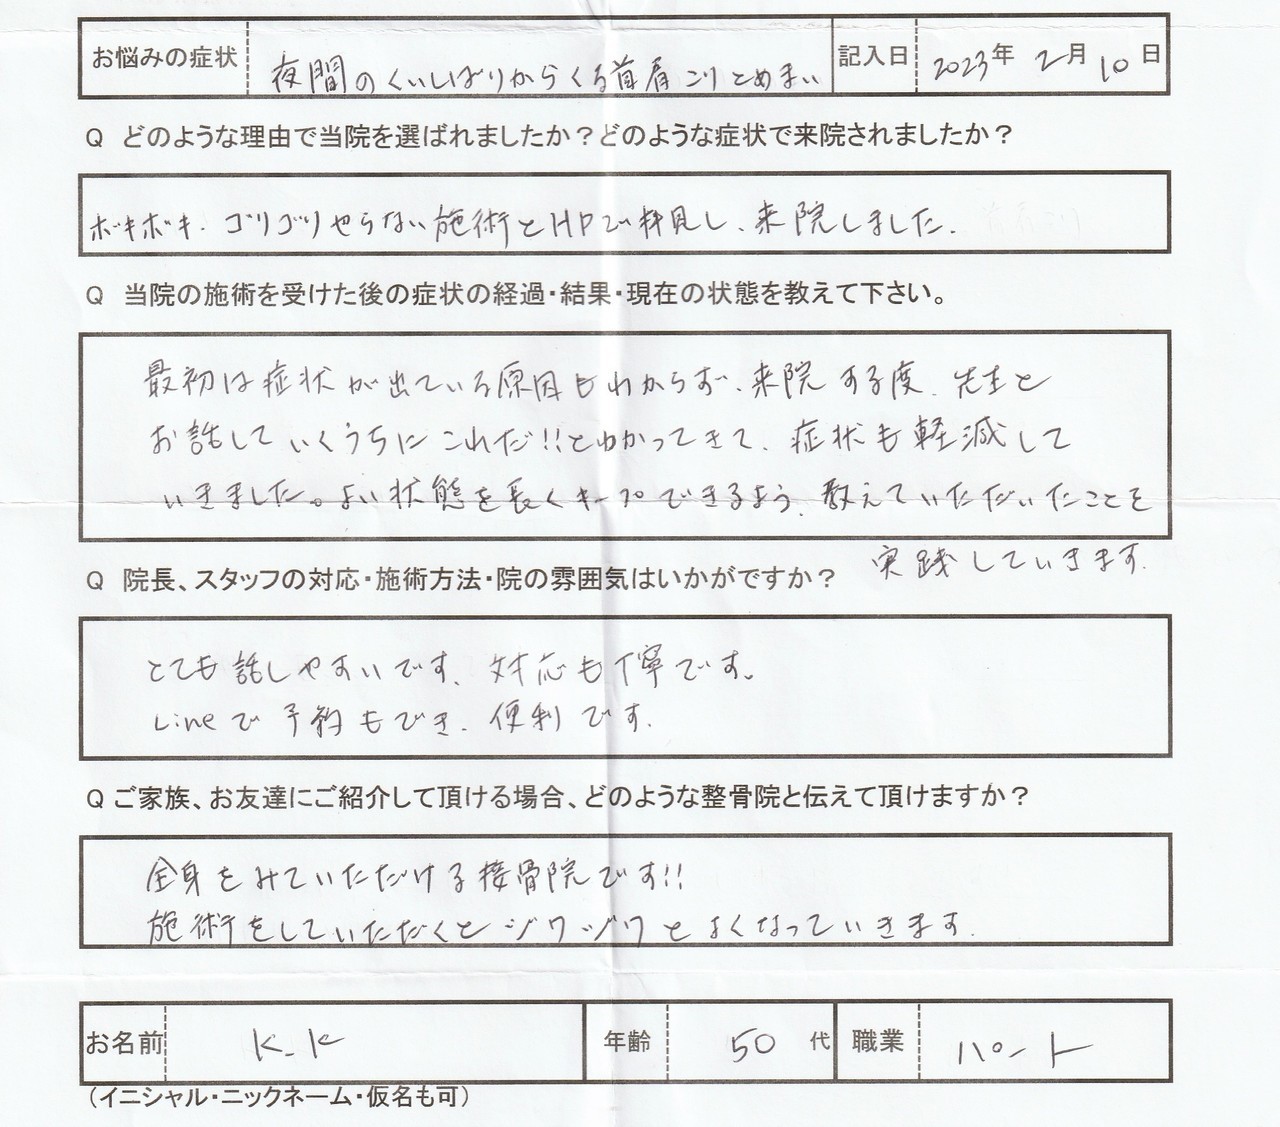 お悩みの症状 夜間のくいしばりからくる首肩こりとめまい 記入日 2023年 2月 10日
Q どのような理由で当院を選ばれましたか？どのような症状で来院されましたか？
ボキボキ、ゴリゴリやらない施術とHPで拝見し、来院しました。
Q 当院の施術を受けた後の症状の経過・結果・現在の状態を教えて下さい。
最初は症状が出ている原因もわからず、来院する度、先生と
お話していくうちにこれだ!!とわかってきて、症状も軽減して
いきました。よい状態を長くキープできるよう、教えていただいたことを
実践していきます。
Q 院長、スタッフの対応・施術方法・院の雰囲気はいかがですか？
とても話しやすいです。対応も丁寧です。
Lineで予約もでき、便利です。
Q ご家族、お友達にご紹介して頂ける場合、どのような整骨院と伝えて頂けますか？
全身をみていただける接骨院です!!
施術をしていただくとジワジワとよくなっていきます。
お名前 K.K 年齢 50代 職業 パート
（イニシャル・ニックネーム・仮名も可）